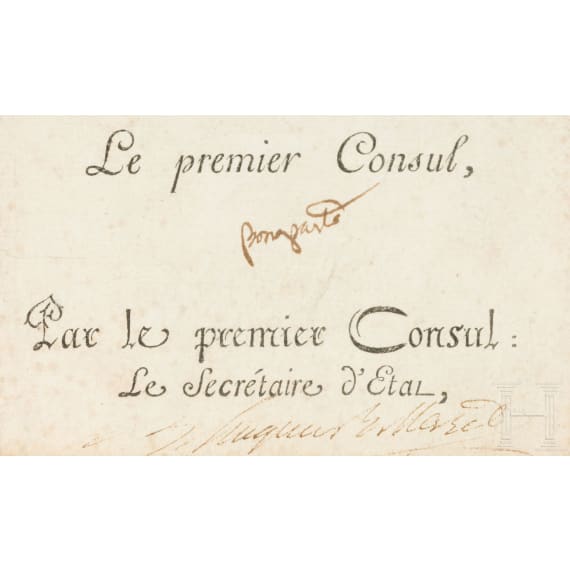 Le premier Consul,
Bonaparte
Par le premier Consul :
Le Secrétaire d'Etat,
hugues B. Maret
H